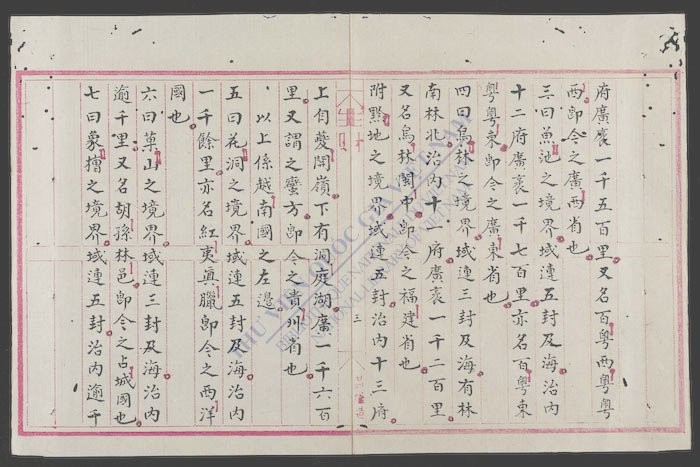 府廣袤一千五百里又名百粤西粤粤
西即今之廣西省也
三曰魚池之境界域連五封及海治内
十二府廣袤一千七百里亦名百粤東
粤粤東即今之廣東省也
四曰烏林之境界域連三封及海有林
南林北治内十一府廣袤一千二百里
又名烏林閩中即今之福建省也
附黔地之境界域連五封治内十三府
三
上自夔開嶺下有洞庭湖廣一千六百
里又謂之蠻方即今之貴州省也
以上係越南國之左邉
五曰花洞之境界域連五封及海治内
一千餘里亦名紅夷眞臘即今之西洋
國也
六曰草山之境界域連三封及海治内
逾千里又名胡孫林邑即今之占城國也
七曰象撞之境界域連五封治内逾千
THƯ VIỆN QUỐC GIA VIỆT NAM
BIBLIOTHEQUE NATIONALE DU VIETNAM
NATIONAL LIBRARY OF VIETNAM